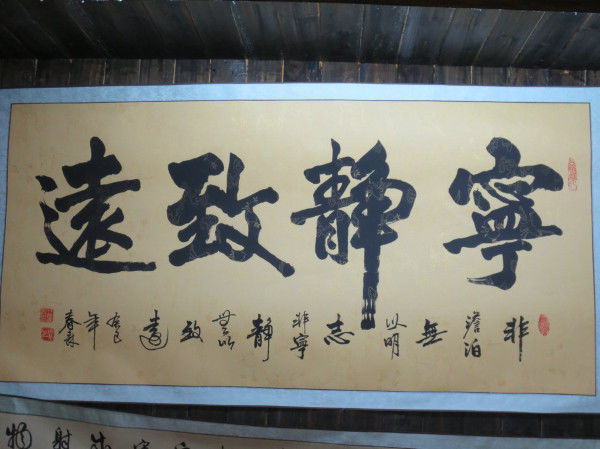 寧靜致遠
非澹泊無以明志非寧靜無以致遠癸巳年春